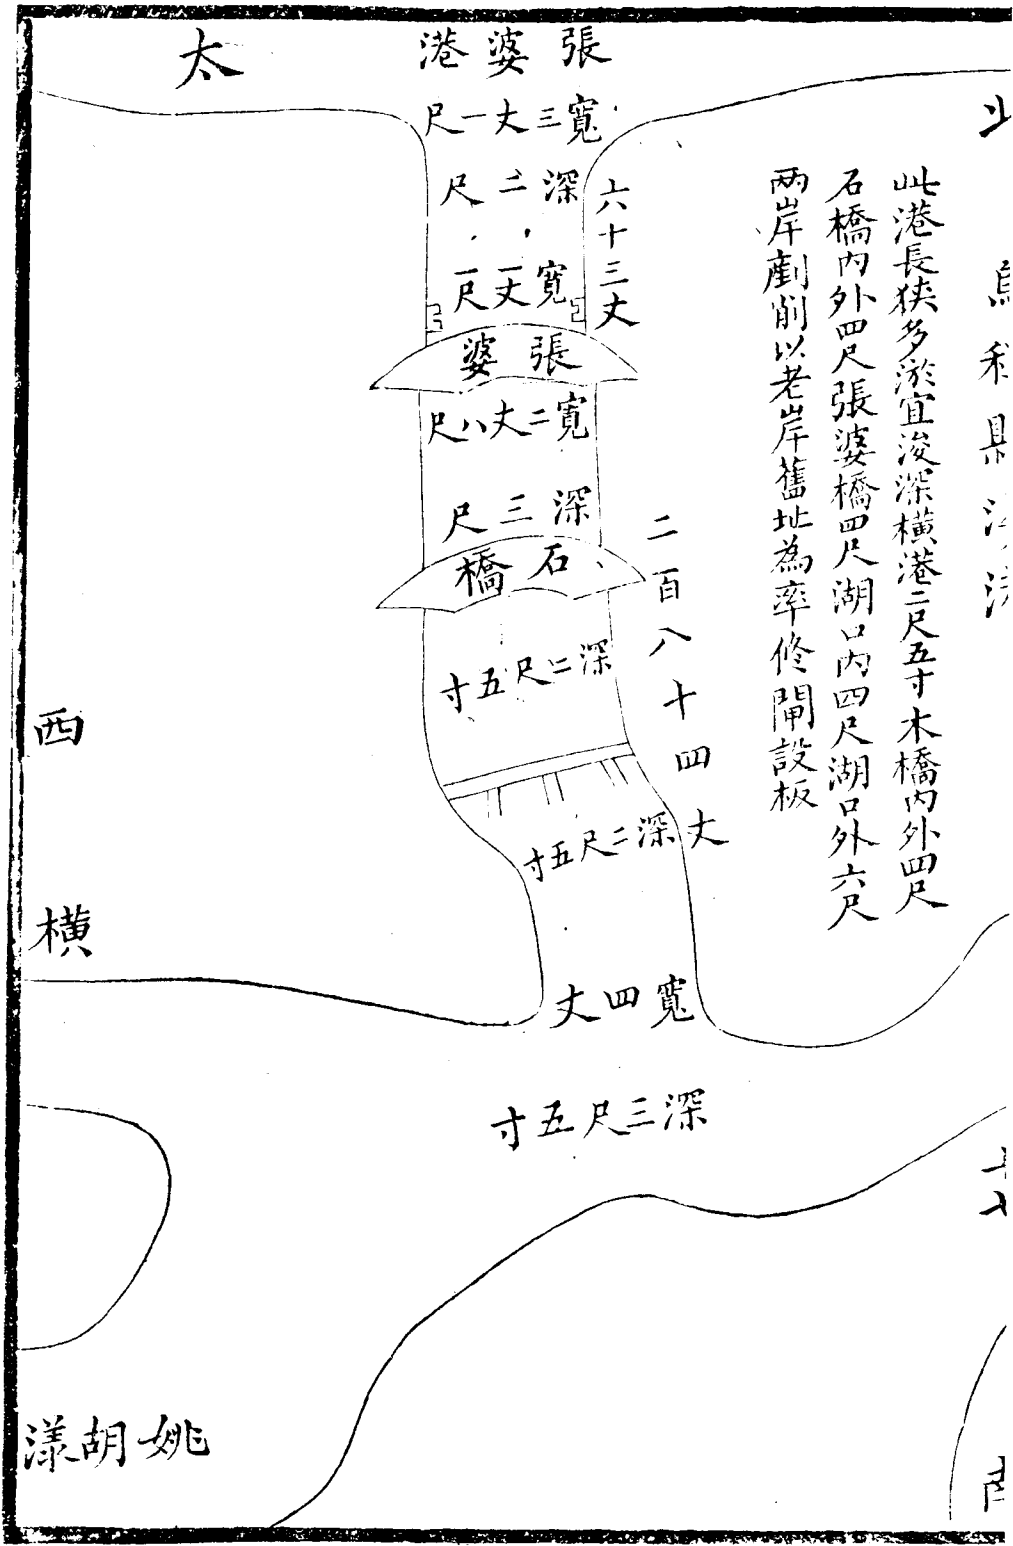 張婆港
太
寬三丈一尺
深二尺
寬一丈一尺
六十三丈
張婆
寬二丈八尺
深三尺
石橋
二百八十四丈
深二尺五寸
深二尺五寸
寬四丈
深三尺五寸
此港長狹多淤宜浚深橫港二尺五寸木橋內外四尺
石橋內外四尺張婆橋四尺湖口內四尺湖口外六尺
兩岸剷削以老岸舊址為率修閘設板
西
橫
姚胡漾